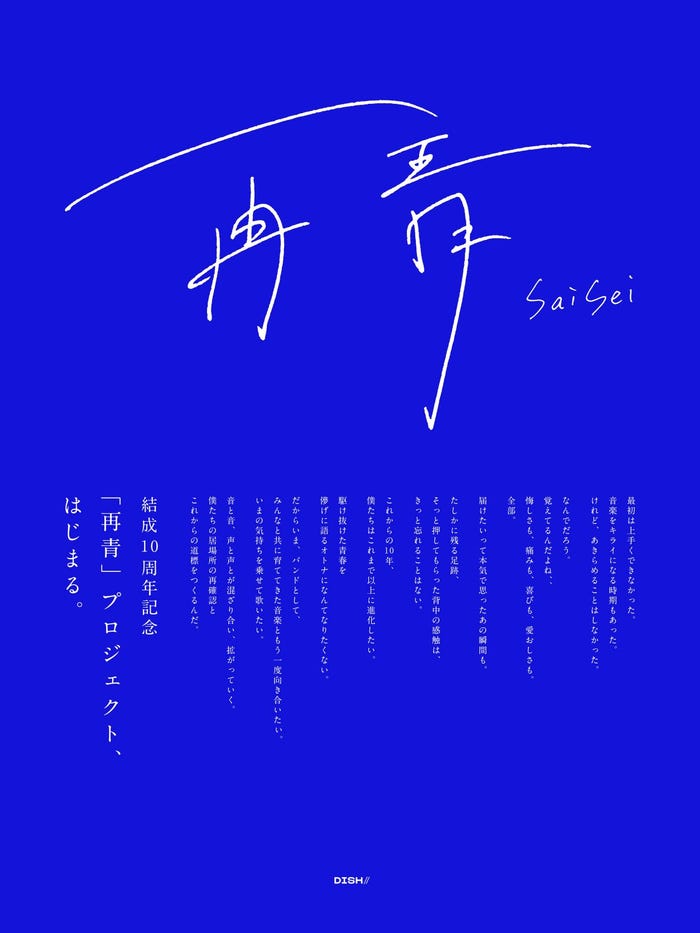 再青
SaiSei
最初は上手くできなかった。
音楽をキライになる時期もあった。
けれど、あきらめることはしなかった。
なんでだろう。
覚えてるんだよね、
悔しさも、痛みも、喜びも、愛おしさも。
全部。
届けたいって本気で思ったあの瞬間も。
たしかに残る足跡、
そっと押してもらった背中の感触は、
きっと忘れることはない。
これからの10年、
僕たちはこれまで以上に進化したい。
駆け抜けた青春を
儚げに語るオトナになんてなりたくない。
だからいま、バンドとして、
みんなと共に育ててきた音楽ともう一度向き合いたい。
いまの気持ちを乗せて歌いたい。
音と音、声と声とが混ざり合い、拡がっていく。
僕たちの居場所の再確認と
これからの道標をつくるんだ。
結成10周年記念
「再青」プロジェクト、
はじまる。
DISH//